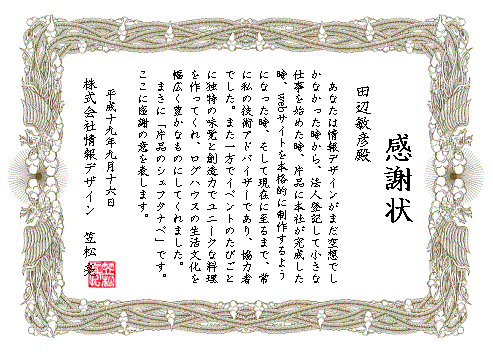 感謝状
田辺敏彦殿
あなたは情報デザインがまだ空想でし
かなかった時から、法人登記して小さな
仕事を始めた時、片品に本社が完成した
時、webサイトを本格的に制作するよう
になった時、そして現在に至るまで、常
に私の技術アドバイザーであり、協力者
でした。また一方でイベントのたびごと
に独特の味覚と創造力でユニークな料理
を作ってくれ、ログハウスの生活文化を
幅広く豊かなものにしてくれました。
まさに「片品のシェフタナベ」です。
ここに感謝の意を表します。
平成十九年九月十六日
株式会社情報デザイン　笠松